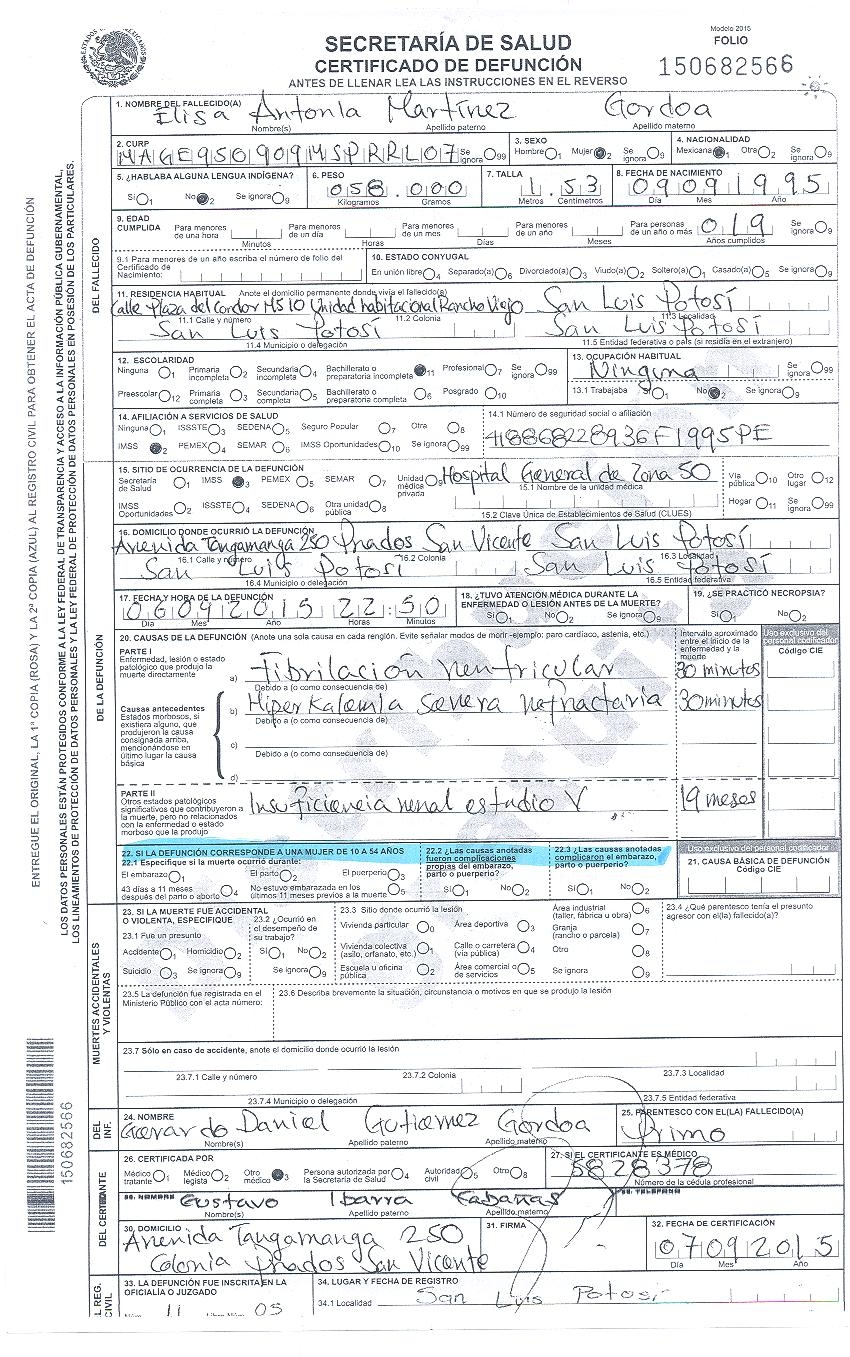 Modelo 2015
SECRETARÍA DE SALUD
FOLIO
CERTIFICADO DE DEFUNCIÓN
150682566
ANTES DE LLENAR LEA LAS INSTRUCCIONES EN EL REVERSO
ENTREGUE EL ORIGINAL, LA 1ª COPIA (ROSA) Y LA 2ª COPIA (AZUL) AL REGISTRO CIVIL PARA OBTENER EL ACTA DE DEFUNCIÓN
LOS DATOS PERSONALES ESTÁN PROTEGIDOS CONFORME A LA LEY FEDERAL DE TRANSPARENCIA Y ACCESO A LA INFORMACIÓN PÚBLICA GUBERNAMENTAL,
LOS LINEAMIENTOS DE PROTECCIÓN DE DATOS PERSONALES Y LA LEY FEDERAL DE PROTECCIÓN DE DATOS PERSONALES EN POSESIÓN DE LOS PARTICULARES.
150682566
DEL FALLECIDO
1. NOMBRE DEL FALLECIDO(A)
Elisa Antonia Martínez Gordoa
Nombre(s) Apellido paterno Apellido materno
2. CURP MAGE950909MSPRRL07 Se ignora 99
3. SEXO Hombre 1 Mujer 2 Se ignora 9
4. NACIONALIDAD Mexicana 1 Otra 2 Se ignora 9
5. ¿HABLABA ALGUNA LENGUA INDÍGENA?
Sí 1 No 2 Se ignora 9
6. PESO 058.000
Kilogramos Gramos
7. TALLA 1.53
Metros Centímetros
8. FECHA DE NACIMIENTO 09091995
Día Mes Año
9. EDAD CUMPLIDA
Para menores de una hora Minutos
Para menores de un día Horas
Para menores de un mes Días
Para menores de un año Meses
Para personas de un año o más 019 Años cumplidos
Se ignora 9
9.1 Para menores de un año escriba el número de folio del Certificado de Nacimiento:
10. ESTADO CONYUGAL
En unión libre 4 Separado(a) 6 Divorciado(a) 3 Viudo(a) 2 Soltero(a) 1 Casado(a) 5 Se ignora 9
11. RESIDENCIA HABITUAL Anote el domicilio permanente donde vivía el fallecido(a)
Calle Plaza del Condor M5 10 Unidad habitacional Rancho Viejo San Luis Potosí
11.1 Calle y número 11.2 Colonia 11.3 Localidad
San Luis Potosí San Luis Potosí
11.4 Municipio o delegación 11.5 Entidad federativa o país (si residía en el extranjero)
12. ESCOLARIDAD
Ninguna 1 Primaria incompleta 2 Secundaria incompleta 4 Bachillerato o preparatoria incompleta 11 Profesional 7 Se ignora 99
Preescolar 12 Primaria completa 3 Secundaria completa 5 Bachillerato o preparatoria completa 6 Posgrado 10
13. OCUPACIÓN HABITUAL
Ninguna
Se ignora 99
13.1 Trabajaba Sí 1 No 2 Se ignora 9
14. AFILIACIÓN A SERVICIOS DE SALUD
Ninguna 1 ISSSTE 3 SEDENA 5 Seguro Popular 7 Otra 8
IMSS 2 PEMEX 4 SEMAR 6 IMSS Oportunidades 10 Se ignora 99
14.1 Número de seguridad social o afiliación
418868228936F1995PE
DE LA DEFUNCIÓN
15. SITIO DE OCURRENCIA DE LA DEFUNCIÓN
Secretaría de Salud 1 IMSS 3 PEMEX 5 SEMAR 7 Unidad médica privada 9
IMSS Oportunidades 2 ISSSTE 4 SEDENA 6 Otra unidad pública 8
Hospital General de Zona 50
15.1 Nombre de la unidad médica
15.2 Clave Única de Establecimientos de Salud (CLUES)
Vía pública 10 Otro lugar 12
Hogar 11 Se ignora 99
16. DOMICILIO DONDE OCURRIÓ LA DEFUNCIÓN
Avenida Tangamanga 250 Prados San Vicente San Luis Potosí
16.1 Calle y número 16.2 Colonia 16.3 Localidad
San Luis Potosí San Luis Potosí
16.4 Municipio o delegación 16.5 Entidad federativa
17. FECHA Y HORA DE LA DEFUNCIÓN
06092015 22:50
Día Mes Año Horas Minutos
18. ¿TUVO ATENCIÓN MÉDICA DURANTE LA ENFERMEDAD O LESIÓN ANTES DE LA MUERTE?
Sí 1 No 2 Se ignora 9
19. ¿SE PRACTICÓ NECROPSIA?
Sí 1 No 2
20. CAUSAS DE LA DEFUNCIÓN (Anote una sola causa en cada renglón. Evite señalar modos de morir -ejemplo: paro cardíaco, astenia, etc.)
Intervalo aproximado entre el inicio de la enfermedad y la muerte
Uso exclusivo del personal codificador
Código CIE
PARTE I
Enfermedad, lesión o estado patológico que produjo la muerte directamente
a) Fibrilación ventricular 30 minutos
Debido a (o como consecuencia de)
Causas antecedentes
Estados morbosos, si existiera alguno, que produjeron la causa consignada arriba, mencionándose en último lugar la causa básica
b) Hiperkalemia severa refractaria 30 minutos
Debido a (o como consecuencia de)
c)
Debido a (o como consecuencia de)
d)
PARTE II
Otros estados patológicos significativos que contribuyeron a la muerte, pero no relacionados con la enfermedad o estado morboso que la produjo
Insuficiencia renal estadio V 19 meses
22. SI LA DEFUNCIÓN CORRESPONDE A UNA MUJER DE 10 A 54 AÑOS
22.1 Especifique si la muerte ocurrió durante:
El embarazo 1 El parto 2 El puerperio 3
43 días a 11 meses después del parto o aborto 4 No estuvo embarazada en los últimos 11 meses previos a la muerte 5
22.2 ¿Las causas anotadas fueron complicaciones propias del embarazo, parto o puerperio?
Sí 1 No 2
22.3 ¿Las causas anotadas complicaron el embarazo, parto o puerperio?
Sí 1 No 2
Uso exclusivo del personal codificador
21. CAUSA BÁSICA DE DEFUNCIÓN
Código CIE
MUERTES ACCIDENTALES Y VIOLENTAS
23. SI LA MUERTE FUE ACCIDENTAL O VIOLENTA, ESPECIFIQUE
23.1 Fue un presunto
Accidente 1 Homicidio 2
Suicidio 3 Se ignora 9
23.2 ¿Ocurrió en el desempeño de su trabajo?
Sí 1 No 2
Se ignora 9
23.3 Sitio donde ocurrió la lesión
Vivienda particular 0 Área deportiva 3 Área industrial (taller, fábrica u obra) 6
Vivienda colectiva (asilo, orfanato, etc.) 1 Calle o carretera (vía pública) 4 Granja (rancho o parcela) 7
Escuela u oficina pública 2 Área comercial o de servicios 5 Otro 8
Se ignora 9
23.4 ¿Qué parentesco tenía el presunto agresor con el(la) fallecido(a)?
23.5 La defunción fue registrada en el Ministerio Público con el acta número:
23.6 Describa brevemente la situación, circunstancia o motivos en que se produjo la lesión
23.7 Sólo en caso de accidente, anote el domicilio donde ocurrió la lesión
23.7.1 Calle y número 23.7.2 Colonia 23.7.3 Localidad
23.7.4 Municipio o delegación 23.7.5 Entidad federativa
DEL INF.
24. NOMBRE
Gerardo Daniel Gutierrez Gordoa
Nombre(s) Apellido paterno Apellido materno
25. PARENTESCO CON EL(LA) FALLECIDO(A)
Primo
DEL CERTIFICANTE
26. CERTIFICADA POR
Médico tratante 1 Médico legista 2 Otro médico 3 Persona autorizada por la Secretaría de Salud 4 Autoridad civil 5 Otro 8
27. SI EL CERTIFICANTE ES MÉDICO
5828378
Número de la cédula profesional
28. NOMBRE
Gustavo Ibarra Cabañas
Nombre(s) Apellido paterno Apellido materno
29. TELÉFONO
30. DOMICILIO
Avenida Tangamanga 250
Colonia Prados San Vicente
31. FIRMA
32. FECHA DE CERTIFICACIÓN
07092015
Día Mes Año
L REG. CIVIL
33. LA DEFUNCIÓN FUE INSCRITA EN LA OFICIALÍA O JUZGADO
11 05
34. LUGAR Y FECHA DE REGISTRO
34.1 Localidad San Luis Potosí